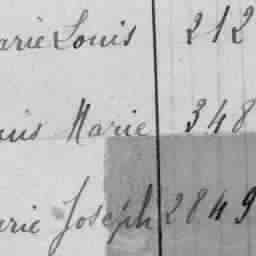 arie Louis 212
uis Marie 348
arie Joseph 2849